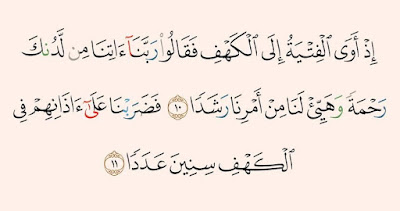 إِذْ أَوَى ٱلْفِتْيَةُ إِلَى ٱلْكَهْفِ فَقَالُوا۟ رَبَّنَآ ءَاتِنَا مِن لَّدُنكَ
رَحْمَةً وَهَيِّئْ لَنَا مِنْ أَمْرِنَا رَشَدًا ١٠ فَضَرَبْنَا عَلَىٰٓ ءَاذَانِهِمْ فِى
ٱلْكَهْفِ سِنِينَ عَدَدًا ١١